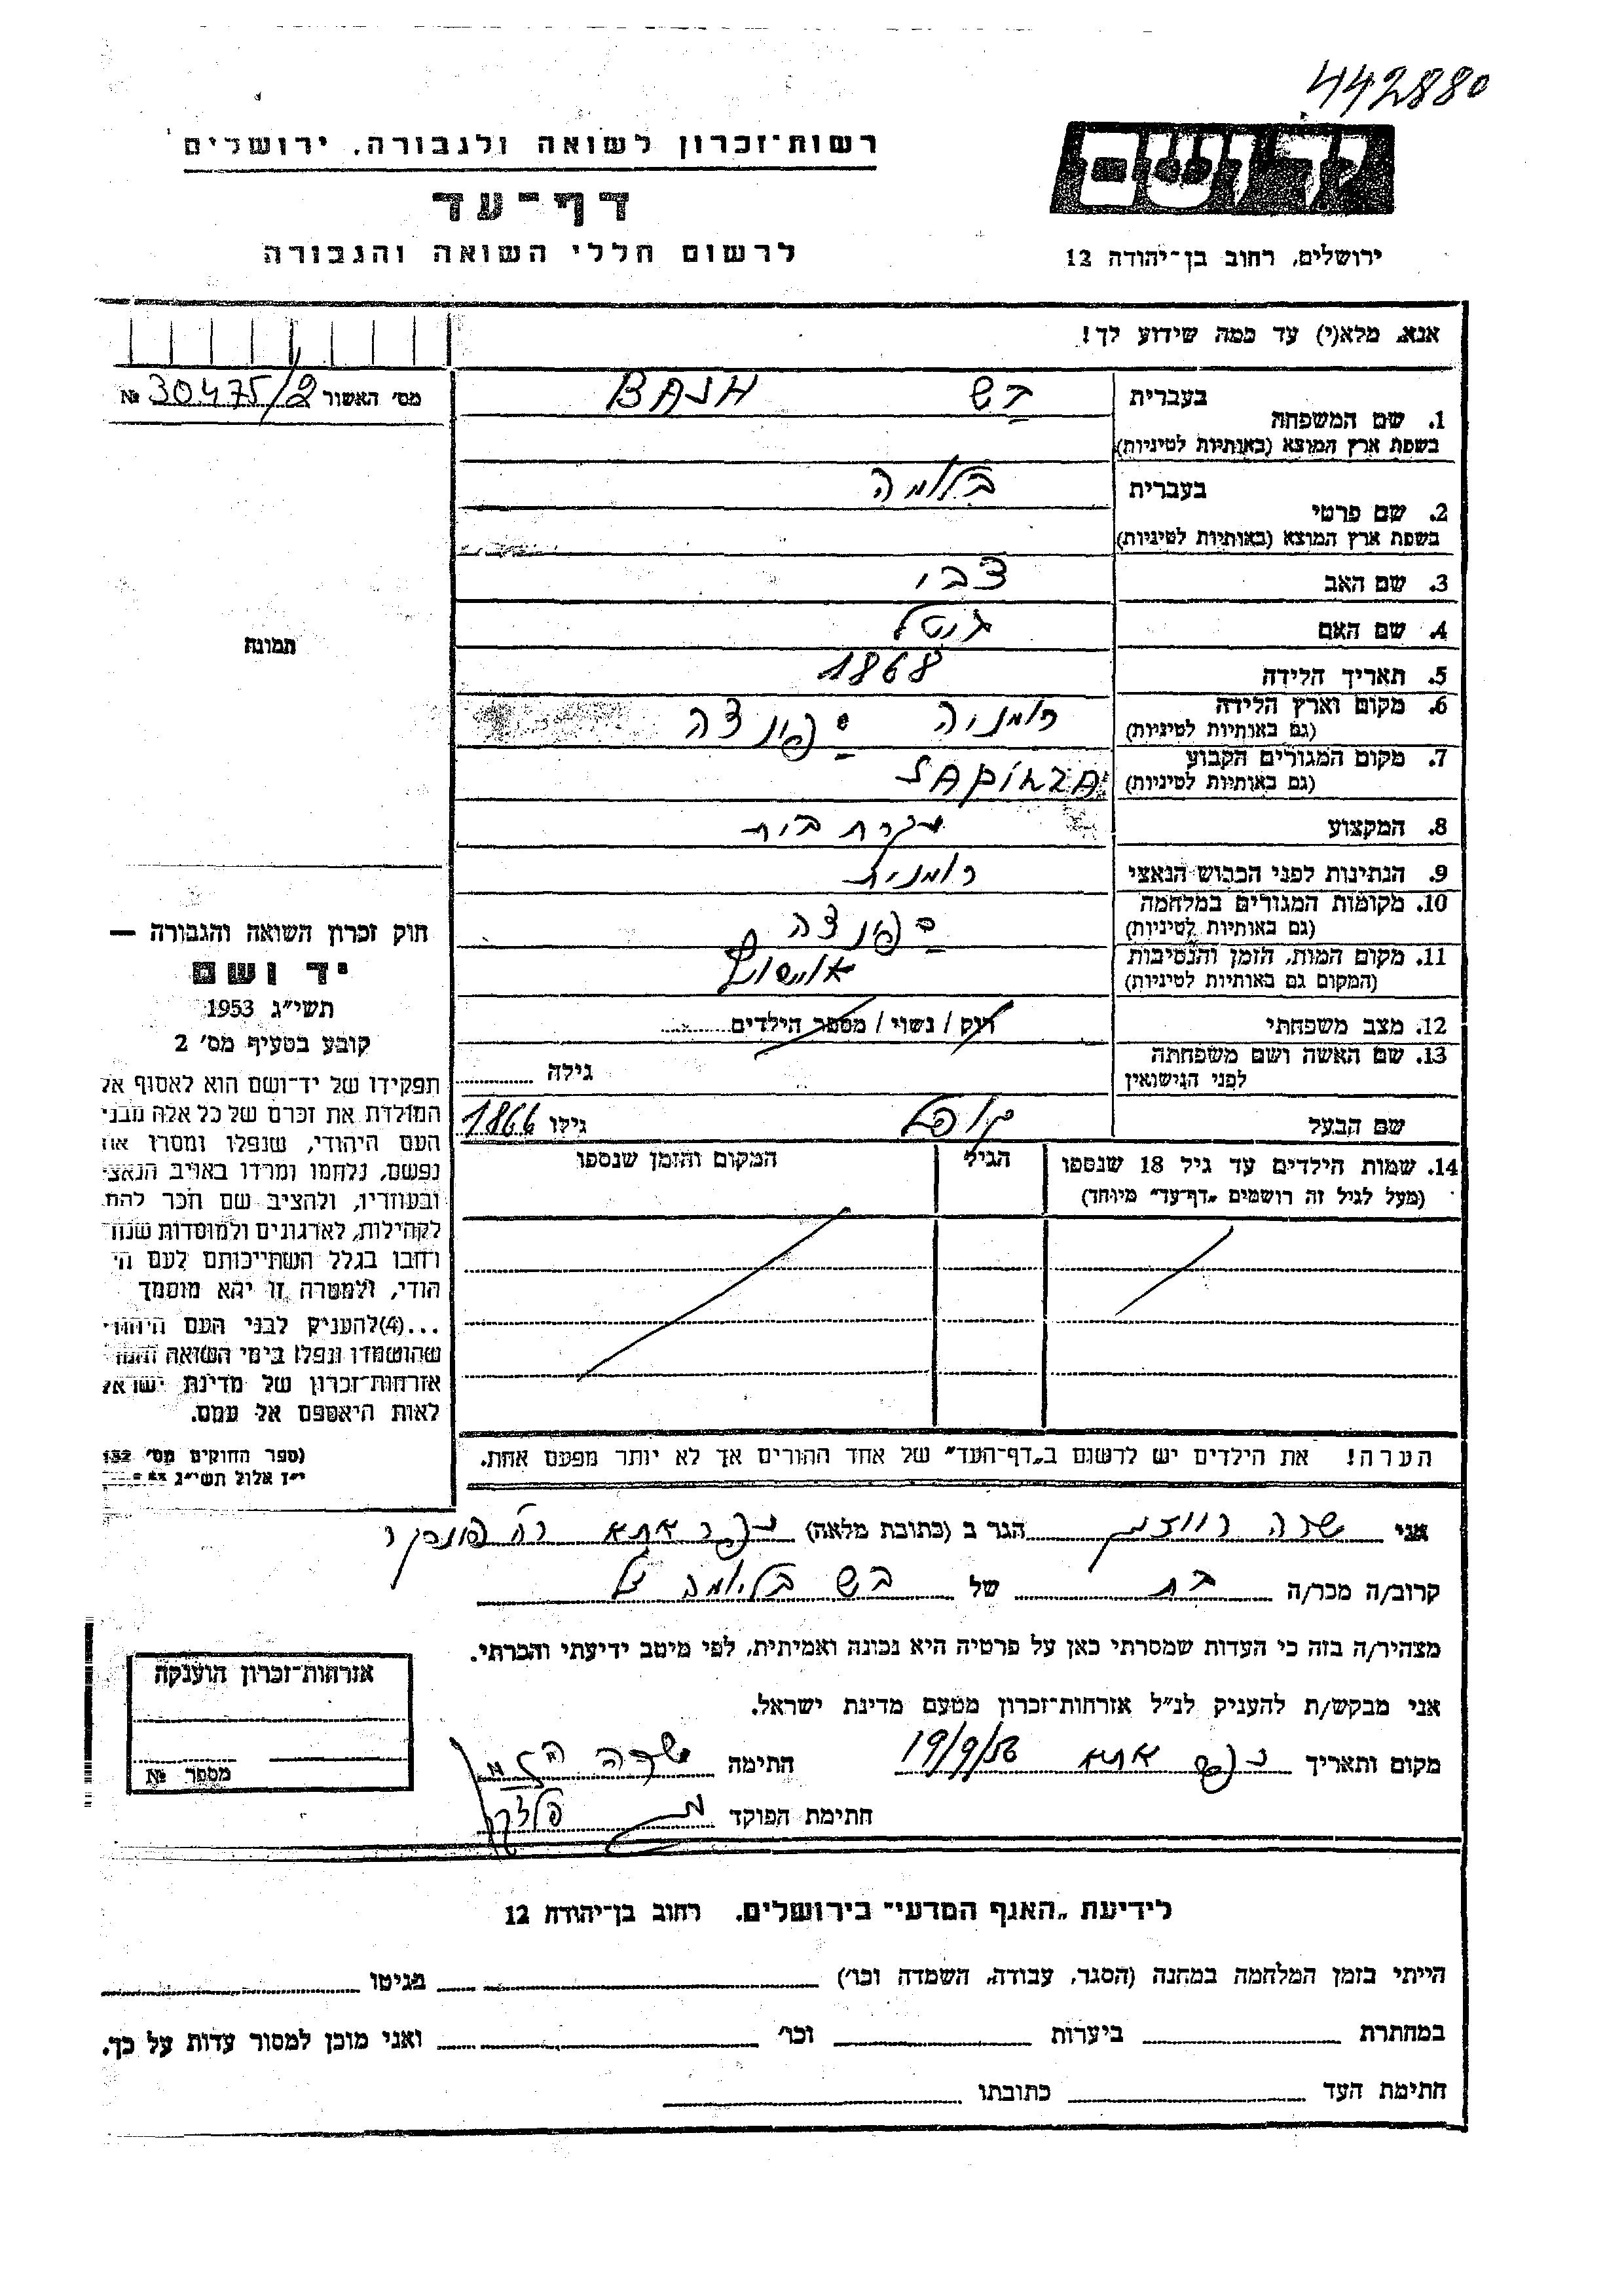 442880
רשות־זכרון לשואה ולגבורה, ירושלים
דף־עד
לרשום חללי השואה והגבורה
יד ושם
ירושלים, רחוב בן־יהודה 12
אנא, מלא(י) עד כמה שידוע לך!
מס׳ האשור 30475/2 №
1. שם המשפחה בעברית בש BASH
בשפת ארץ המוצא (באותיות לטיניות)
2. שם פרטי בעברית בלומה
בשפת ארץ המוצא (באותיות לטיניות)
3. שם האב צבי
4. שם האם
5. תאריך הלידה 1868
6. מקום וארץ הלידה רומניה ספינצה
(גם באותיות לטיניות)
7. מקום המגורים הקבוע SAPINZA
(גם באותיות לטיניות)
8. המקצוע עקרת בית
9. הנתינות לפני הכבוש הנאצי רומנית
10. מקומות המגורים במלחמה ספינצה
(גם באותיות לטיניות)
11. מקום המות, הזמן והנסיבות אושויץ
(המקום גם באותיות לטיניות)
12. מצב משפחתי רוק / נשוי / מספר הילדים
13. שם האשה ושם משפחתה
לפני הנישואין גילה
שם הבעל קופל גילו 1866
14. שמות הילדים עד גיל 18 שנספו הגיל המקום והזמן שנספו
(מעל לגיל זה רושמים „דף־עד״ מיוחד)
הערה! את הילדים יש לרשום ב„דף־העד״ של אחד ההורים אך לא יותר מפעם אחת.
תמונה
חוק זכרון השואה והגבורה —
יד ושם
תשי״ג 1953
קובע בסעיף מס׳ 2
תפקידו של יד־ושם הוא לאסוף אל
המולדת את זכרם של כל אלה מבני
העם היהודי, שנפלו ומסרו את
נפשם, נלחמו ומרדו באויב הנאצי
ובעוזריו, ולהציב שם וזכר להם,
לקהילות, לארגונים ולמוסדות שנח־
רחבו בגלל השתייכותם לעם הי־
הודי, ולמטרה זו יהא מוסמך
...(4)להעניק לבני העם היהודי
שהושמדו ונפלו בימי השואה והמרי
אזרחות־זכרון של מדינת ישראל
לאות היאספם אל עמם.
(ספר החוקים מס׳ 132
י״ז אלול תשי״ג
אני שרה הגר ב (כתובת מלאה) כפר אתא רח׳
קרוב/ה מכר/ה בת של בש בלומה ז״ל
מצהיר/ה בזה כי העדות שמסרתי כאן על פרטיה היא נכונה ואמיתית, לפי מיטב ידיעתי והכרתי.
אני מבקש/ת להעניק לנ״ל אזרחות־זכרון מטעם מדינת ישראל.
מקום ותאריך כפר אתא 19/9/56 חתימה שרה
חתימת הפוקד
אזרחות־זכרון הוענקה
מספר №
לידיעת „האגף המדעי״ בירושלים, רחוב בן־יהודה 12
הייתי בזמן המלחמה במחנה (הסגר, עבודה, השמדה וכו׳) בגיטו
במחתרת ביערות וכו׳ ואני מוכן למסור עדות על כך.
חתימת העד כתובתו